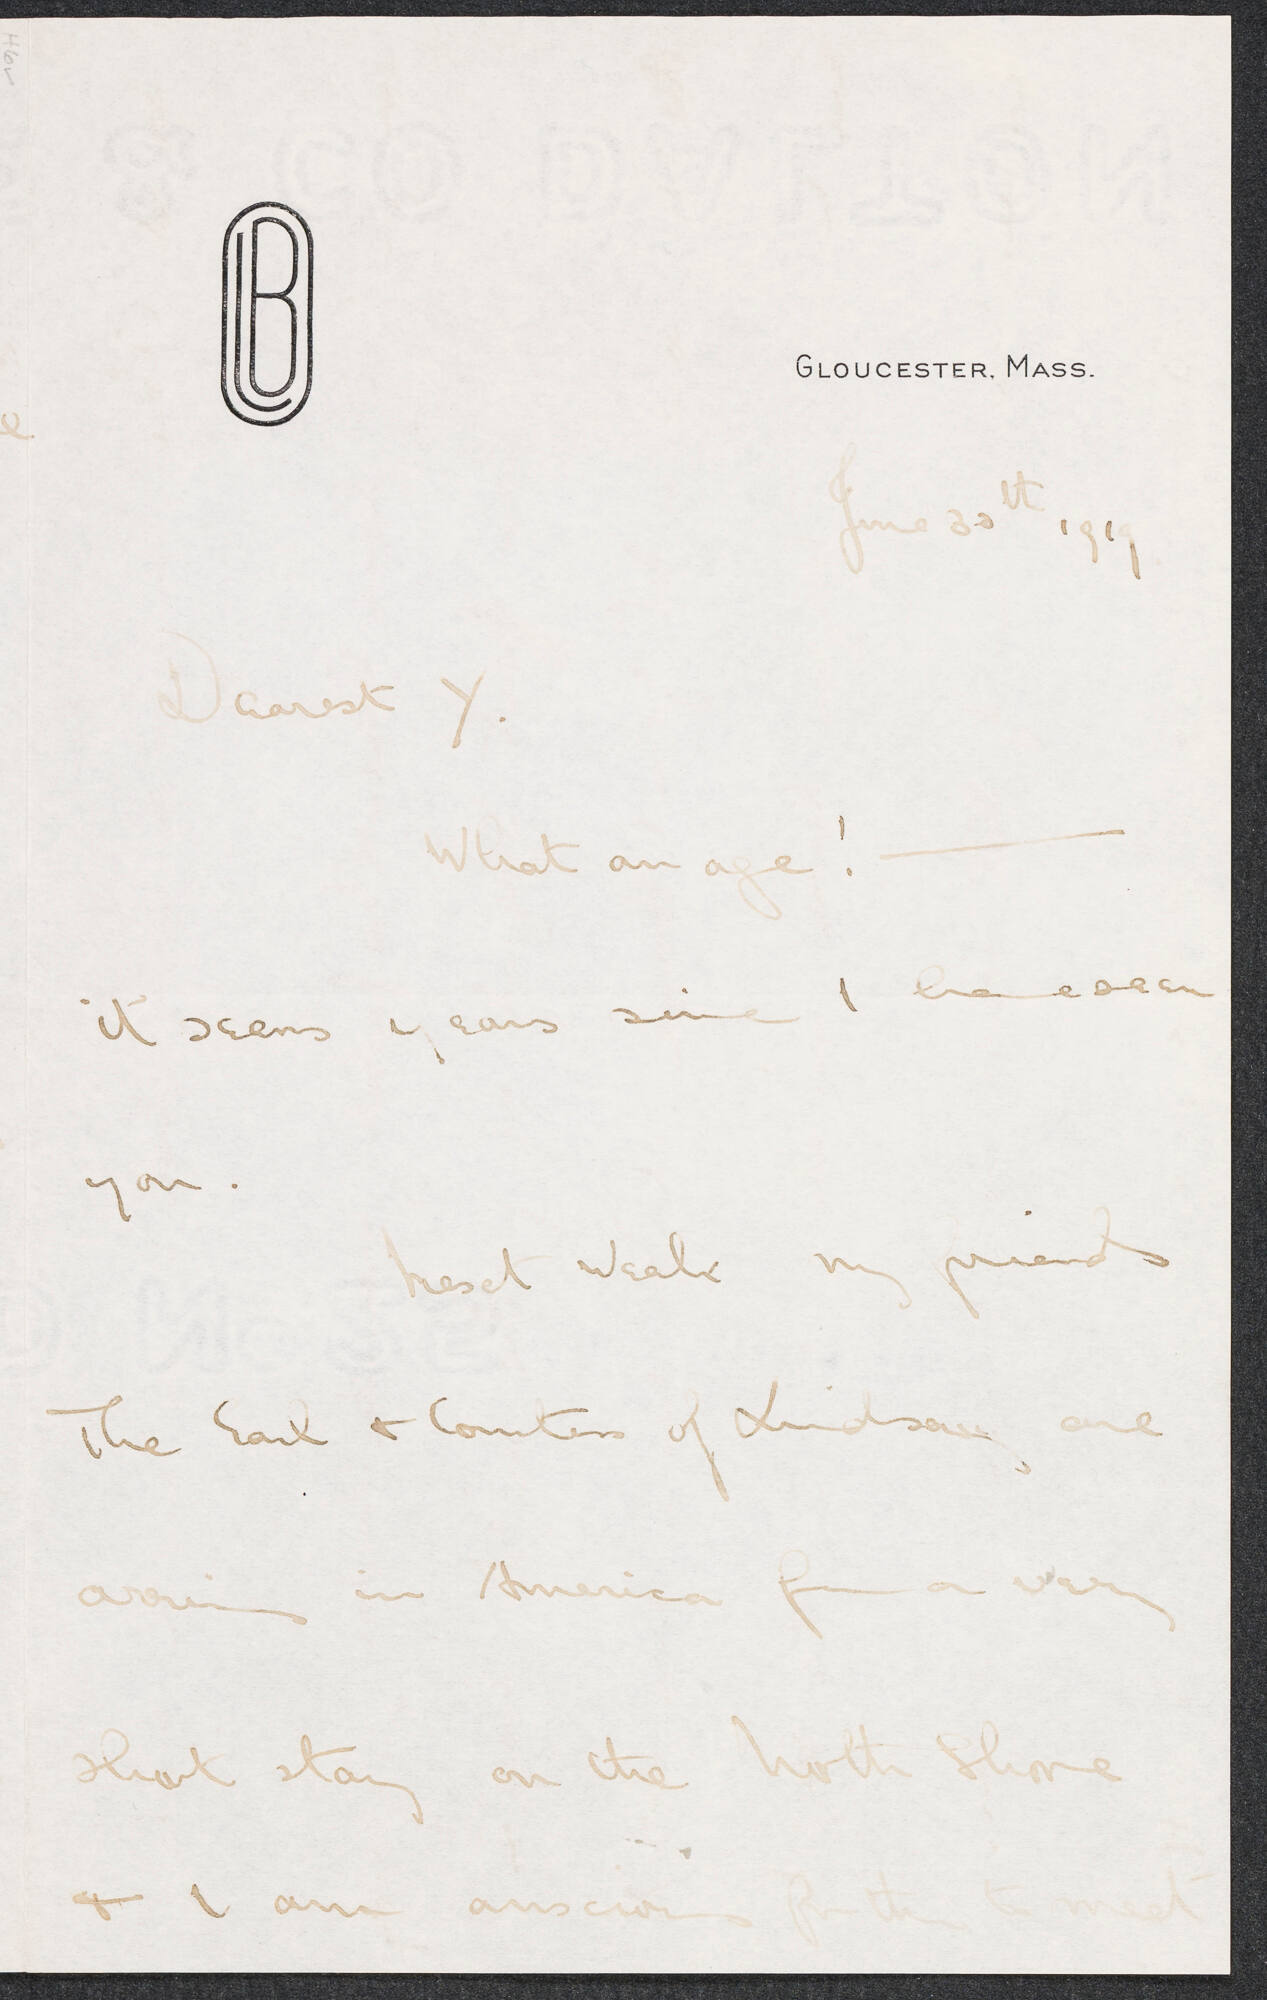 GLOUCESTER, MASS.
June 30th 1919
Dearest Y.
What an age! —
it seems years since I have seen
you.
Next week my friends
The Earl & Countess of Lindsay are
arriving in America for a very
short stay on the North Shore
& I am anxious for them to meet